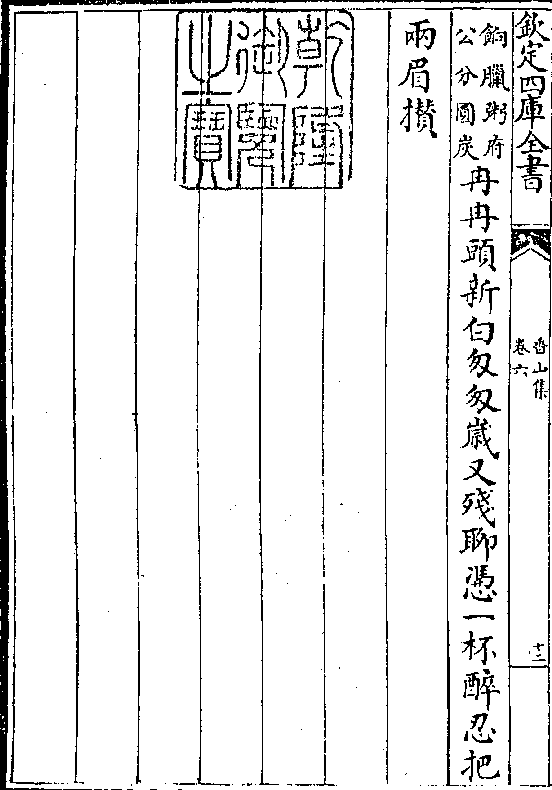 欽定四庫全書
香山集
卷六
十二
餉臘粥府
公分圓炭
冉冉頭新白匆匆歲又殘聊憑一杯醉忍把
兩眉攅
乾隆
御覽
之寶